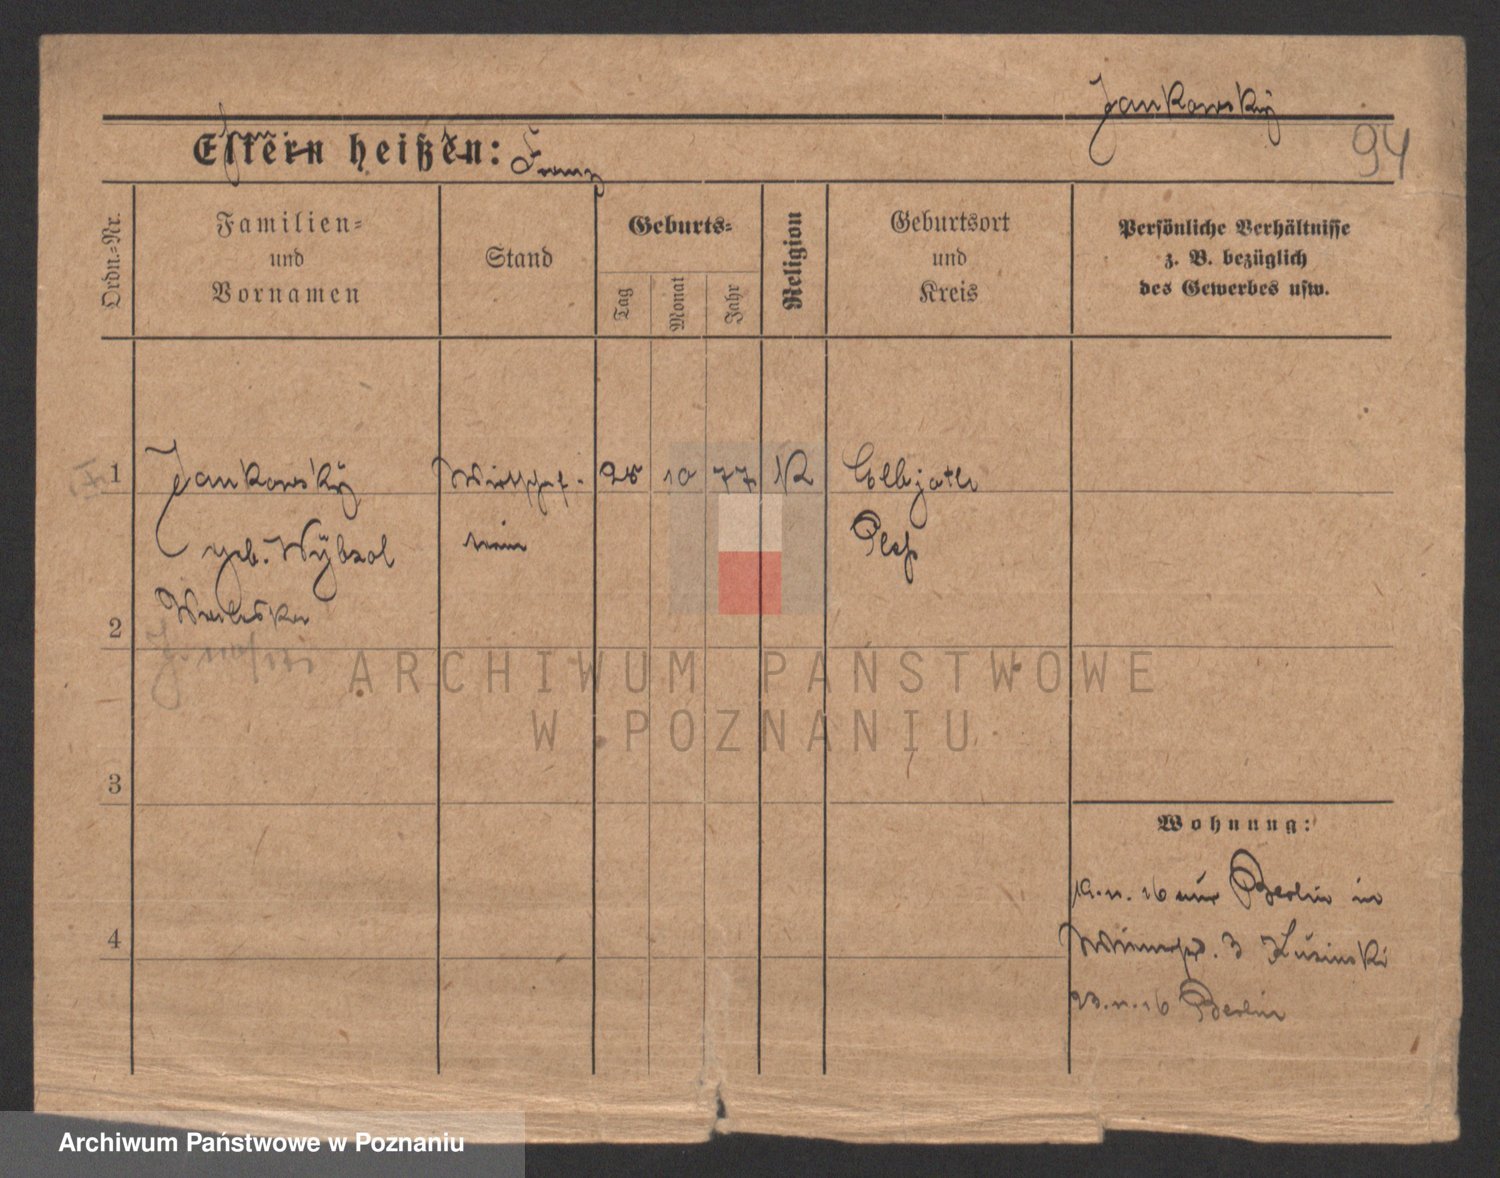 Jankowsky
94
Eltern heißen: Franz
Ordn.=Nr.
Familien=
und
Vornamen
Stand
Geburts=
Tag
Monat
Jahr
Religion
Geburtsort
und
Kreis
Persönliche Verhältnisse
z. B. bezüglich
des Gewerbes usw.
1
Jankowsky
geb.
Wirtschaf-
rin
25 10 77 K
2
3
4
Wohnung:
16 aus Berlin in
3
16 Berlin
ARCHIWUM PAŃSTWOWE
W POZNANIU
Archiwum Państwowe w Poznaniu